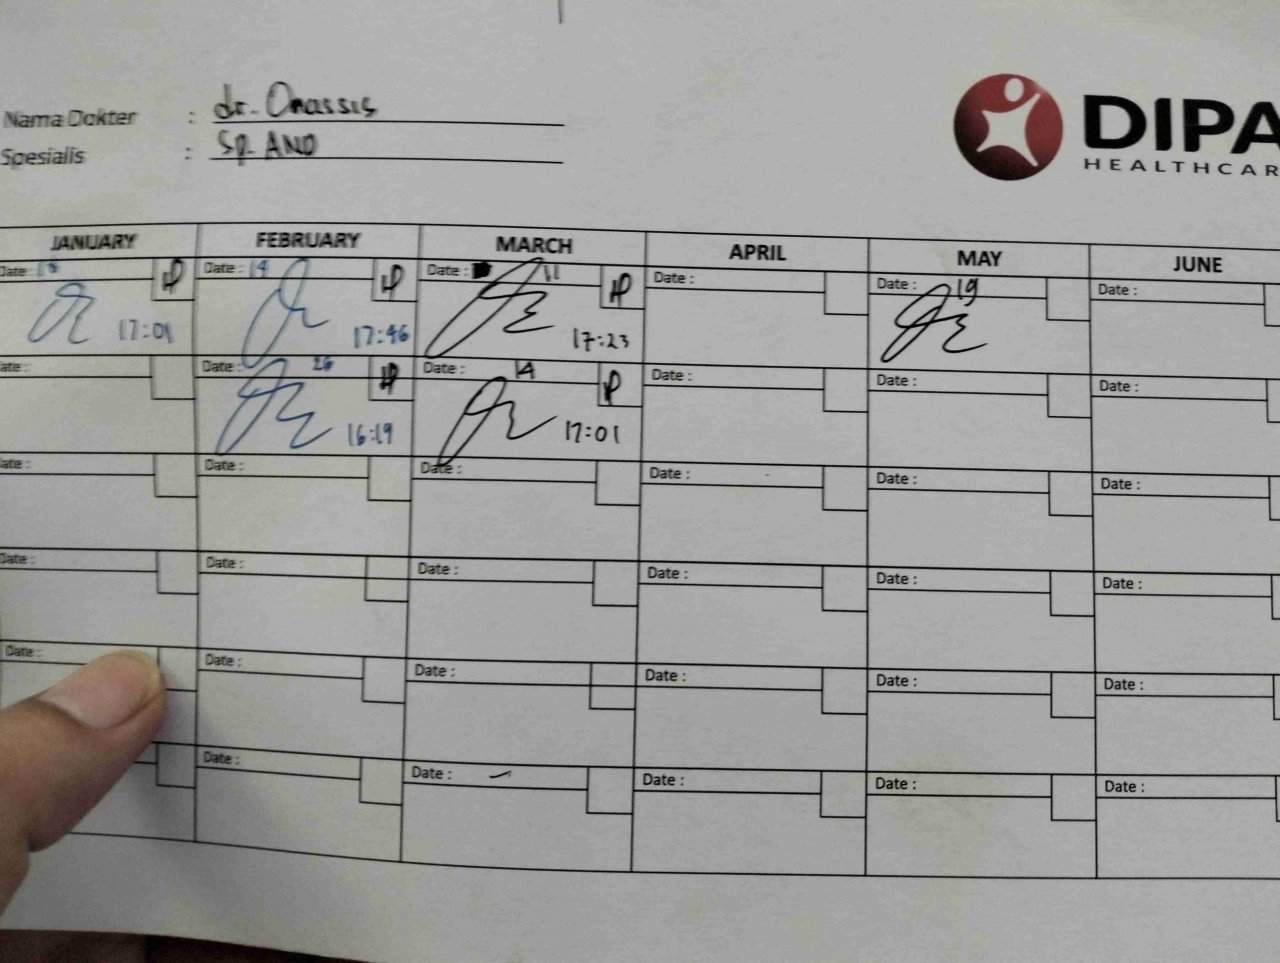 Nama Dokter : dr. Onassis
Spesialis : Sp. AND
DIPA
HEALTHCAR
JANUARY FEBRUARY MARCH APRIL MAY JUNE
Date : Date : 14 Date : 11 Date : Date : 19 Date :
17:01 17:46 17:23
Date : Date : 26 Date : 14 Date : Date : Date :
16:19 17:01
Date : Date : Date : Date : Date : Date :
Date : Date : Date : Date : Date : Date :
Date : Date : Date : Date : Date : Date :
Date : Date : Date : Date : Date :